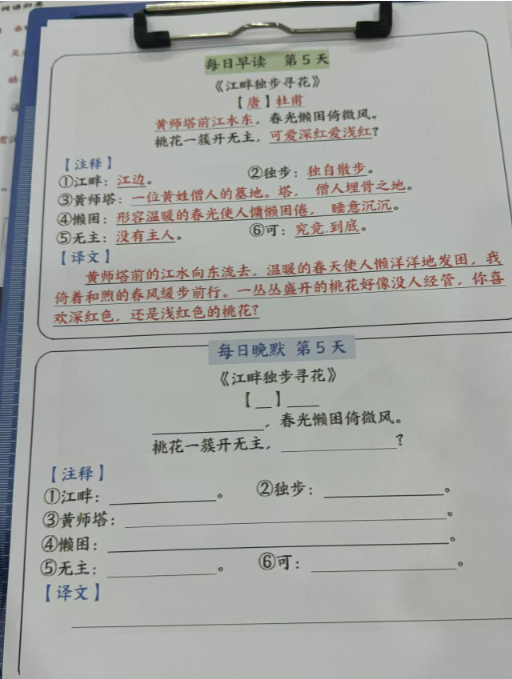 每日早读 第5天
《江畔独步寻花》
【唐】杜甫
黄师塔前江水东，春光懒困倚微风。
桃花一簇开无主，可爱深红爱浅红？
【注释】
①江畔：江边。 ②独步：独自散步。
③黄师塔：一位黄姓僧人的墓地。塔， 僧人埋骨之地。
④懒困：形容温暖的春光使人慵懒困倦， 睡意沉沉。
⑤无主：没有主人。 ⑥可：究竟.到底。
【译文】
黄师塔前的江水向东流去，温暖的春天使人懒洋洋地发困，我
倚着和煦的春风缓步前行。一丛丛盛开的桃花好像没人经管，你喜
欢深红色，还是浅红色的桃花？
每日晚默 第5天
《江畔独步寻花》
【__】____
__________，春光懒困倚微风。
桃花一簇开无主，__________？
【注释】
①江畔：__________。 ②独步：__________。
③黄师塔：______________________________。
④懒困：______________________________。
⑤无主：__________。 ⑥可：__________。
【译文】